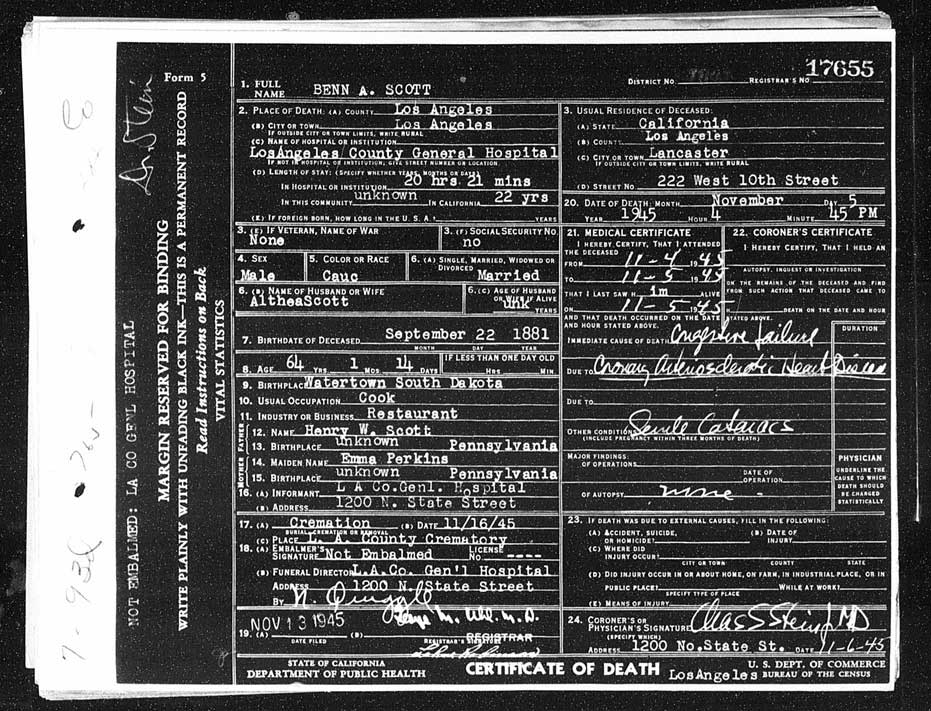 17655
Form 5
1. FULL NAME BENN A. SCOTT
DISTRICT NO. REGISTRAR'S NO.
2. PLACE OF DEATH: (A) COUNTY Los Angeles
(B) CITY OR TOWN Los Angeles
IF OUTSIDE CITY OR TOWN LIMITS, WRITE RURAL
(C) NAME OF HOSPITAL OR INSTITUTION
LosAngeles County General Hospital
IF NOT IN HOSPITAL OR INSTITUTION, GIVE STREET NUMBER OR LOCATION
(D) LENGTH OF STAY: (SPECIFY WHETHER YEARS, MONTHS OR DAYS)
IN HOSPITAL OR INSTITUTION 20 hrs 21 mins
IN THIS COMMUNITY unknown IN CALIFORNIA 22 yrs
(E) IF FOREIGN BORN, HOW LONG IN THE U. S. A.? YEARS
3. USUAL RESIDENCE OF DECEASED:
(A) STATE California
(B) COUNTY Los Angeles
(C) CITY OR TOWN Lancaster
IF OUTSIDE CITY OR TOWN LIMITS, WRITE RURAL
(D) STREET NO. 222 West 10th Street
20. DATE OF DEATH: MONTH November DAY 5
YEAR 1945 HOUR 4 MINUTE 45 PM
3. (E) IF VETERAN, NAME OF WAR
None
3. (F) SOCIAL SECURITY NO.
no
4. SEX
Male
5. COLOR OR RACE
Cauc
6. (A) SINGLE, MARRIED, WIDOWED OR DIVORCED
Married
6. (B) NAME OF HUSBAND OR WIFE
AltheaScott
6. (C) AGE OF HUSBAND OR WIFE IF ALIVE
unk YEARS
7. BIRTHDATE OF DECEASED September 22 1881
MONTH DAY YEAR
8. AGE 64 YRS. 1 MOS. 14 DAYS
IF LESS THAN ONE DAY OLD
HRS. MIN.
9. BIRTHPLACE Watertown South Dakota
10. USUAL OCCUPATION Cook
11. INDUSTRY OR BUSINESS Restaurant
FATHER
12. NAME Henry W. Scott
13. BIRTHPLACE unknown Pennsylvania
MOTHER
14. MAIDEN NAME Emma Perkins
15. BIRTHPLACE unknown Pennsylvania
16. (A) INFORMANT L A Co.Genl. Hospital
(B) ADDRESS 1200 N. State Street
17. (A) Cremation (B) DATE 11/16/45
BURIAL, CREMATION OR REMOVAL
(C) PLACE L. A. County Crematory
18. (A) EMBALMER'S SIGNATURE Not Embalmed LICENSE NO. ----
(B) FUNERAL DIRECTOR L.A.Co. Gen'l Hospital
ADDRESS 1200 N. State Street
BY
NOV 13 1945
19. (A) (B) REGISTRAR
DATE FILED REGISTRAR'S SIGNATURE
21. MEDICAL CERTIFICATE
I HEREBY CERTIFY, THAT I ATTENDED THE DECEASED
FROM 11-4 1945
TO 11-5 1945
THAT I LAST SAW H im ALIVE
ON 11-5 1945
AND THAT DEATH OCCURRED ON THE DATE AND HOUR STATED ABOVE.
22. CORONER'S CERTIFICATE
I HEREBY CERTIFY, THAT I HELD AN
AUTOPSY, INQUEST OR INVESTIGATION
ON THE REMAINS OF THE DECEASED AND FIND FROM SUCH ACTION THAT DECEASED CAME TO
DEATH ON THE DATE AND HOUR STATED ABOVE.
DURATION
IMMEDIATE CAUSE OF DEATH Congestive Failure
DUE TO Coronary Arteriosclerotic Heart Disease
DUE TO
OTHER CONDITIONS Senile Cataracs
(INCLUDE PREGNANCY WITHIN THREE MONTHS OF DEATH)
MAJOR FINDINGS:
OF OPERATIONS
DATE OF OPERATION
OF AUTOPSY none -
PHYSICIAN
UNDERLINE THE CAUSE TO WHICH DEATH SHOULD BE CHARGED STATISTICALLY
23. IF DEATH WAS DUE TO EXTERNAL CAUSES, FILL IN THE FOLLOWING:
(A) ACCIDENT, SUICIDE, OR HOMICIDE? (B) DATE OF INJURY
(C) WHERE DID INJURY OCCUR?
CITY OR TOWN COUNTY STATE
(D) DID INJURY OCCUR IN OR ABOUT HOME, ON FARM, IN INDUSTRIAL PLACE, OR IN
PUBLIC PLACE? WHILE AT WORK?
SPECIFY TYPE OF PLACE
(E) MEANS OF INJURY
24. CORONER'S OR PHYSICIAN'S SIGNATURE Chas S Stein MD
(SPECIFY WHICH)
ADDRESS 1200 No.State St. DATE 11-6-45
STATE OF CALIFORNIA
DEPARTMENT OF PUBLIC HEALTH
CERTIFICATE OF DEATH
LosAngeles
U. S. DEPT. OF COMMERCE
BUREAU OF THE CENSUS
Dr. Stein
NOT EMBALMED: LA CO GENL HOSPITAL
MARGIN RESERVED FOR BINDING
WRITE PLAINLY WITH UNFADING BLACK INK—THIS IS A PERMANENT RECORD
Read Instructions on Back
VITAL STATISTICS